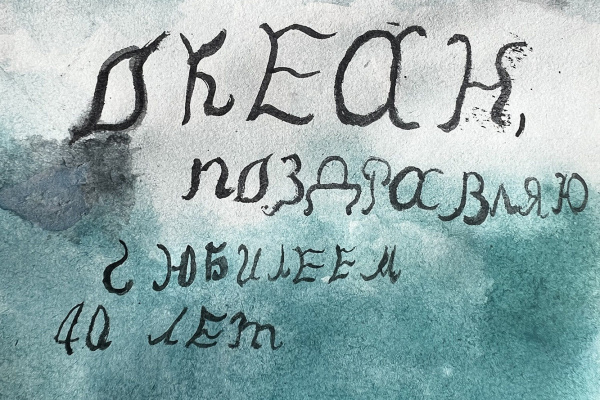 ОКЕАН,
ПОЗДРАВЛЯЮ
С ЮБИЛЕЕМ
40 ЛЕТ